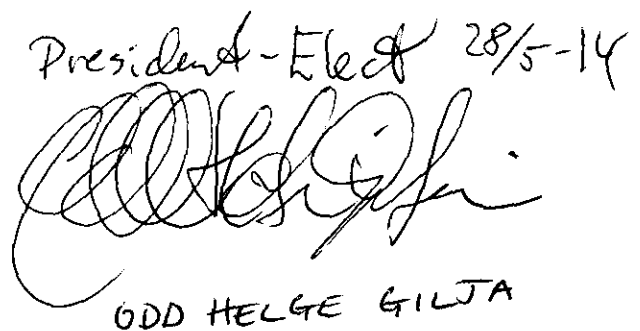 President-Elect 28/5-14
ODD HELGE GILJA